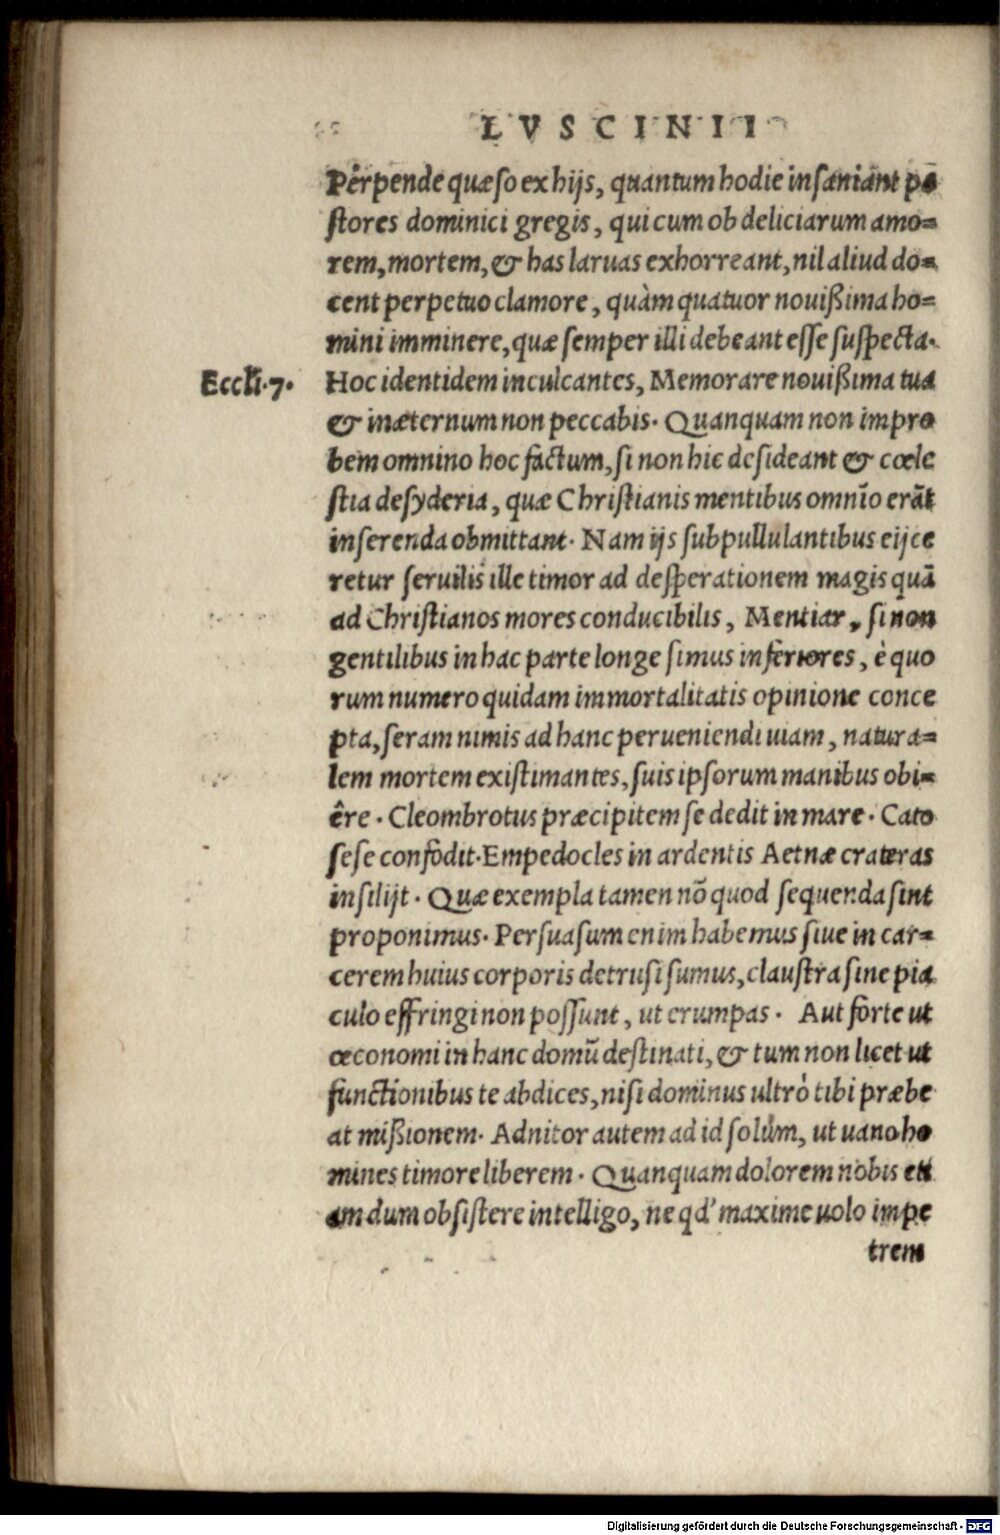 LVSCINII
Perpende quæso ex hijs, quantum hodie insæniant pa
stores dominici gregis, qui cum ob deliciarum amo=
rem, mortem, & has laruas exhorreant, nil aliud do=
cent perpetuo clamore, quàm quatuor nouißima ho=
mini imminere, quæ semper illi debeant esse suspecta.
Eccli.7. Hoc identidem inculcantes, Memorare nouißima tua
& inæternum non peccabis. Quanquam non impro
bem omnino hoc factum, si non hic desideant & cœle
stia desyderia, quæ Christianis mentibus omnīo erāt
inserenda obmittant. Nam ijs subpullulantibus eijce
retur seruilis ille timor ad desperationem magis quā
ad Christianos mores conducibilis, Mentiar, si non
gentilibus in hac parte longe simus inferiores, è quo
rum numero quidam immortalitatis opinione conce
pta, seram nimis ad hanc perueniendi uiam, natura=
lem mortem existimantes, suis ipsorum manibus obi=
êre. Cleombrotus præcipitem se dedit in mare. Cato
sese confodit. Empedocles in ardentis Aetnæ crateras
insilijt. Quæ exempla tamen nō quod sequenda sint
proponimus. Persuasum enim habemus siue in car=
cerem huius corporis detrusi sumus, claustra sine pia
culo effringi non possunt, ut erumpas. Aut forte ut
œconomi in hanc domū destinati, & tum non licet ut
functionibus te abdices, nisi dominus ultrò tibi præbe
at mißionem. Adnitor autem ad id solùm, ut uano ho
mines timore liberem. Quanquam dolorem nobis eti
amdum obsistere intelligo, ne qd' maxime uolo impe
trem
Digitalisierung gefördert durch die Deutsche Forschungsgemeinschaft - DFG